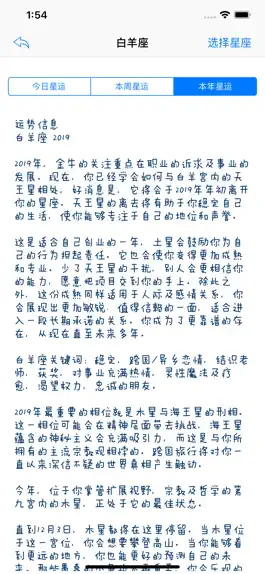 1:54
白羊座
选择星座
今日星运
本周星运
本年星运
运势信息
白羊座 2019
2019年，金牛的关注重点在职业的诉求及事业的
发展。现在，你已经学会如何与白羊宫内的天
王星相处，好消息是，它得会于2019年年初离开
你的星座。天王星的离去得有助于你稳定自己
的生活，使你能够专注于自己的地位和声誉。
这是适合自己创业的一年，土星会鼓励你为自
己的行为担起责任。它也会使你变得更加成熟
和专业。少了天王星的干扰，别人会更相信你
的能力，愿意把项目交到你的手上。除此之
外，这份成熟同样适用于人际及感情关系，你
会展现出更加敏锐，值得信赖的一面，适合进
入一段长期承诺的关系。你成为了更靠谱的存
在，从现在直至未来多年。
白羊座关键词：稳定，跨国/异乡恋情，结识老
师，获奖，对事业充满热情，灵性魔法及疗
愈，渴望权力，忠诚的朋友。
2019年最重要的相位就是木星与海王星的刑相。
这一相位可能会在精神层面带去挑战，海王星
蕴含的神秘主义会充满吸引力，而这是与你所
拥有的主流宗教观相悖的。跨国旅行得对你一
直以来深信不疑的世界真相产生触动。
今年，位于你掌管扩展视野，宗教及哲学的第
九宫内的木星，正处于它的最佳状态。
直到12月3日，木星都得在这里停留。当木星位
于这一宫位，你会想要攀登高山，当你能够看
到更远的地方，你也能更好的预测自己的未